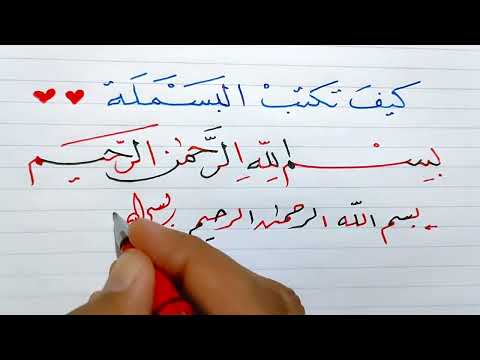 كيفَ تكتبْ البَسْمَلَة
بِسْمِ اللهِ الرَّحْمٰنِ الرَّحيم
بسم الله الرحمٰن الرحيم